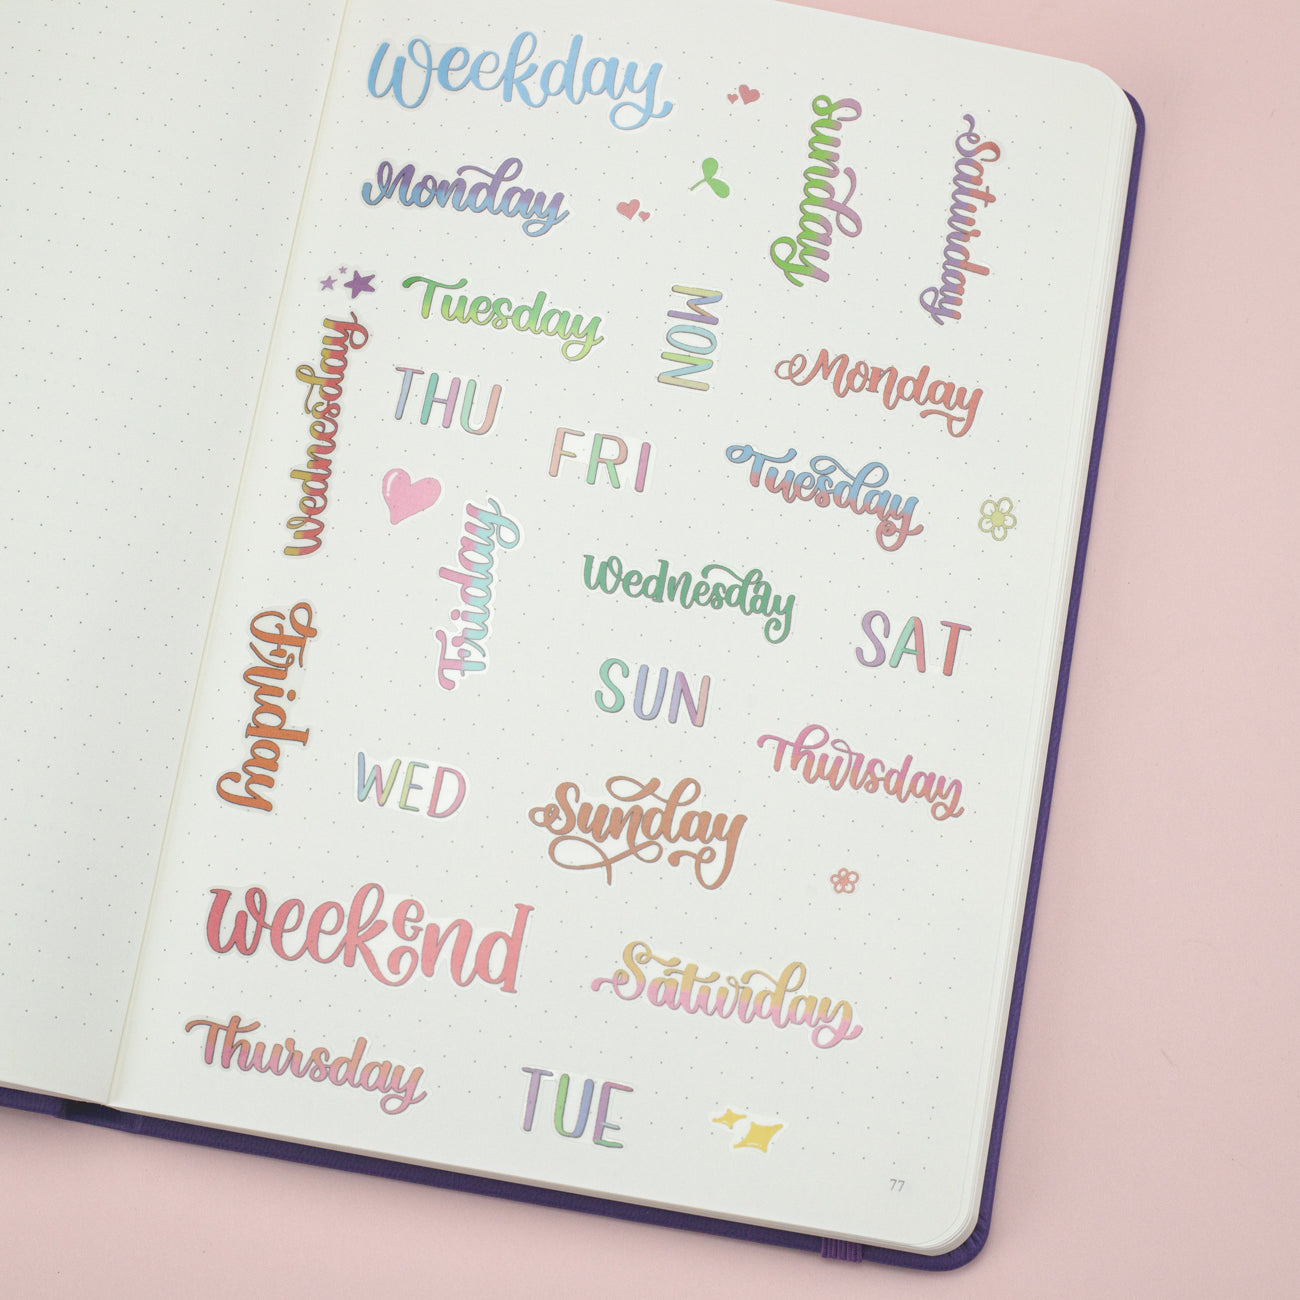 Weekday
Sunday
Saturday
Monday
Tuesday
MON
Wednesday
Monday
THU
FRI
Tuesday
Friday
Wednesday
SAT
Friday
SUN
Thursday
WED
Sunday
weekend
Saturday
Thursday
TUE
77